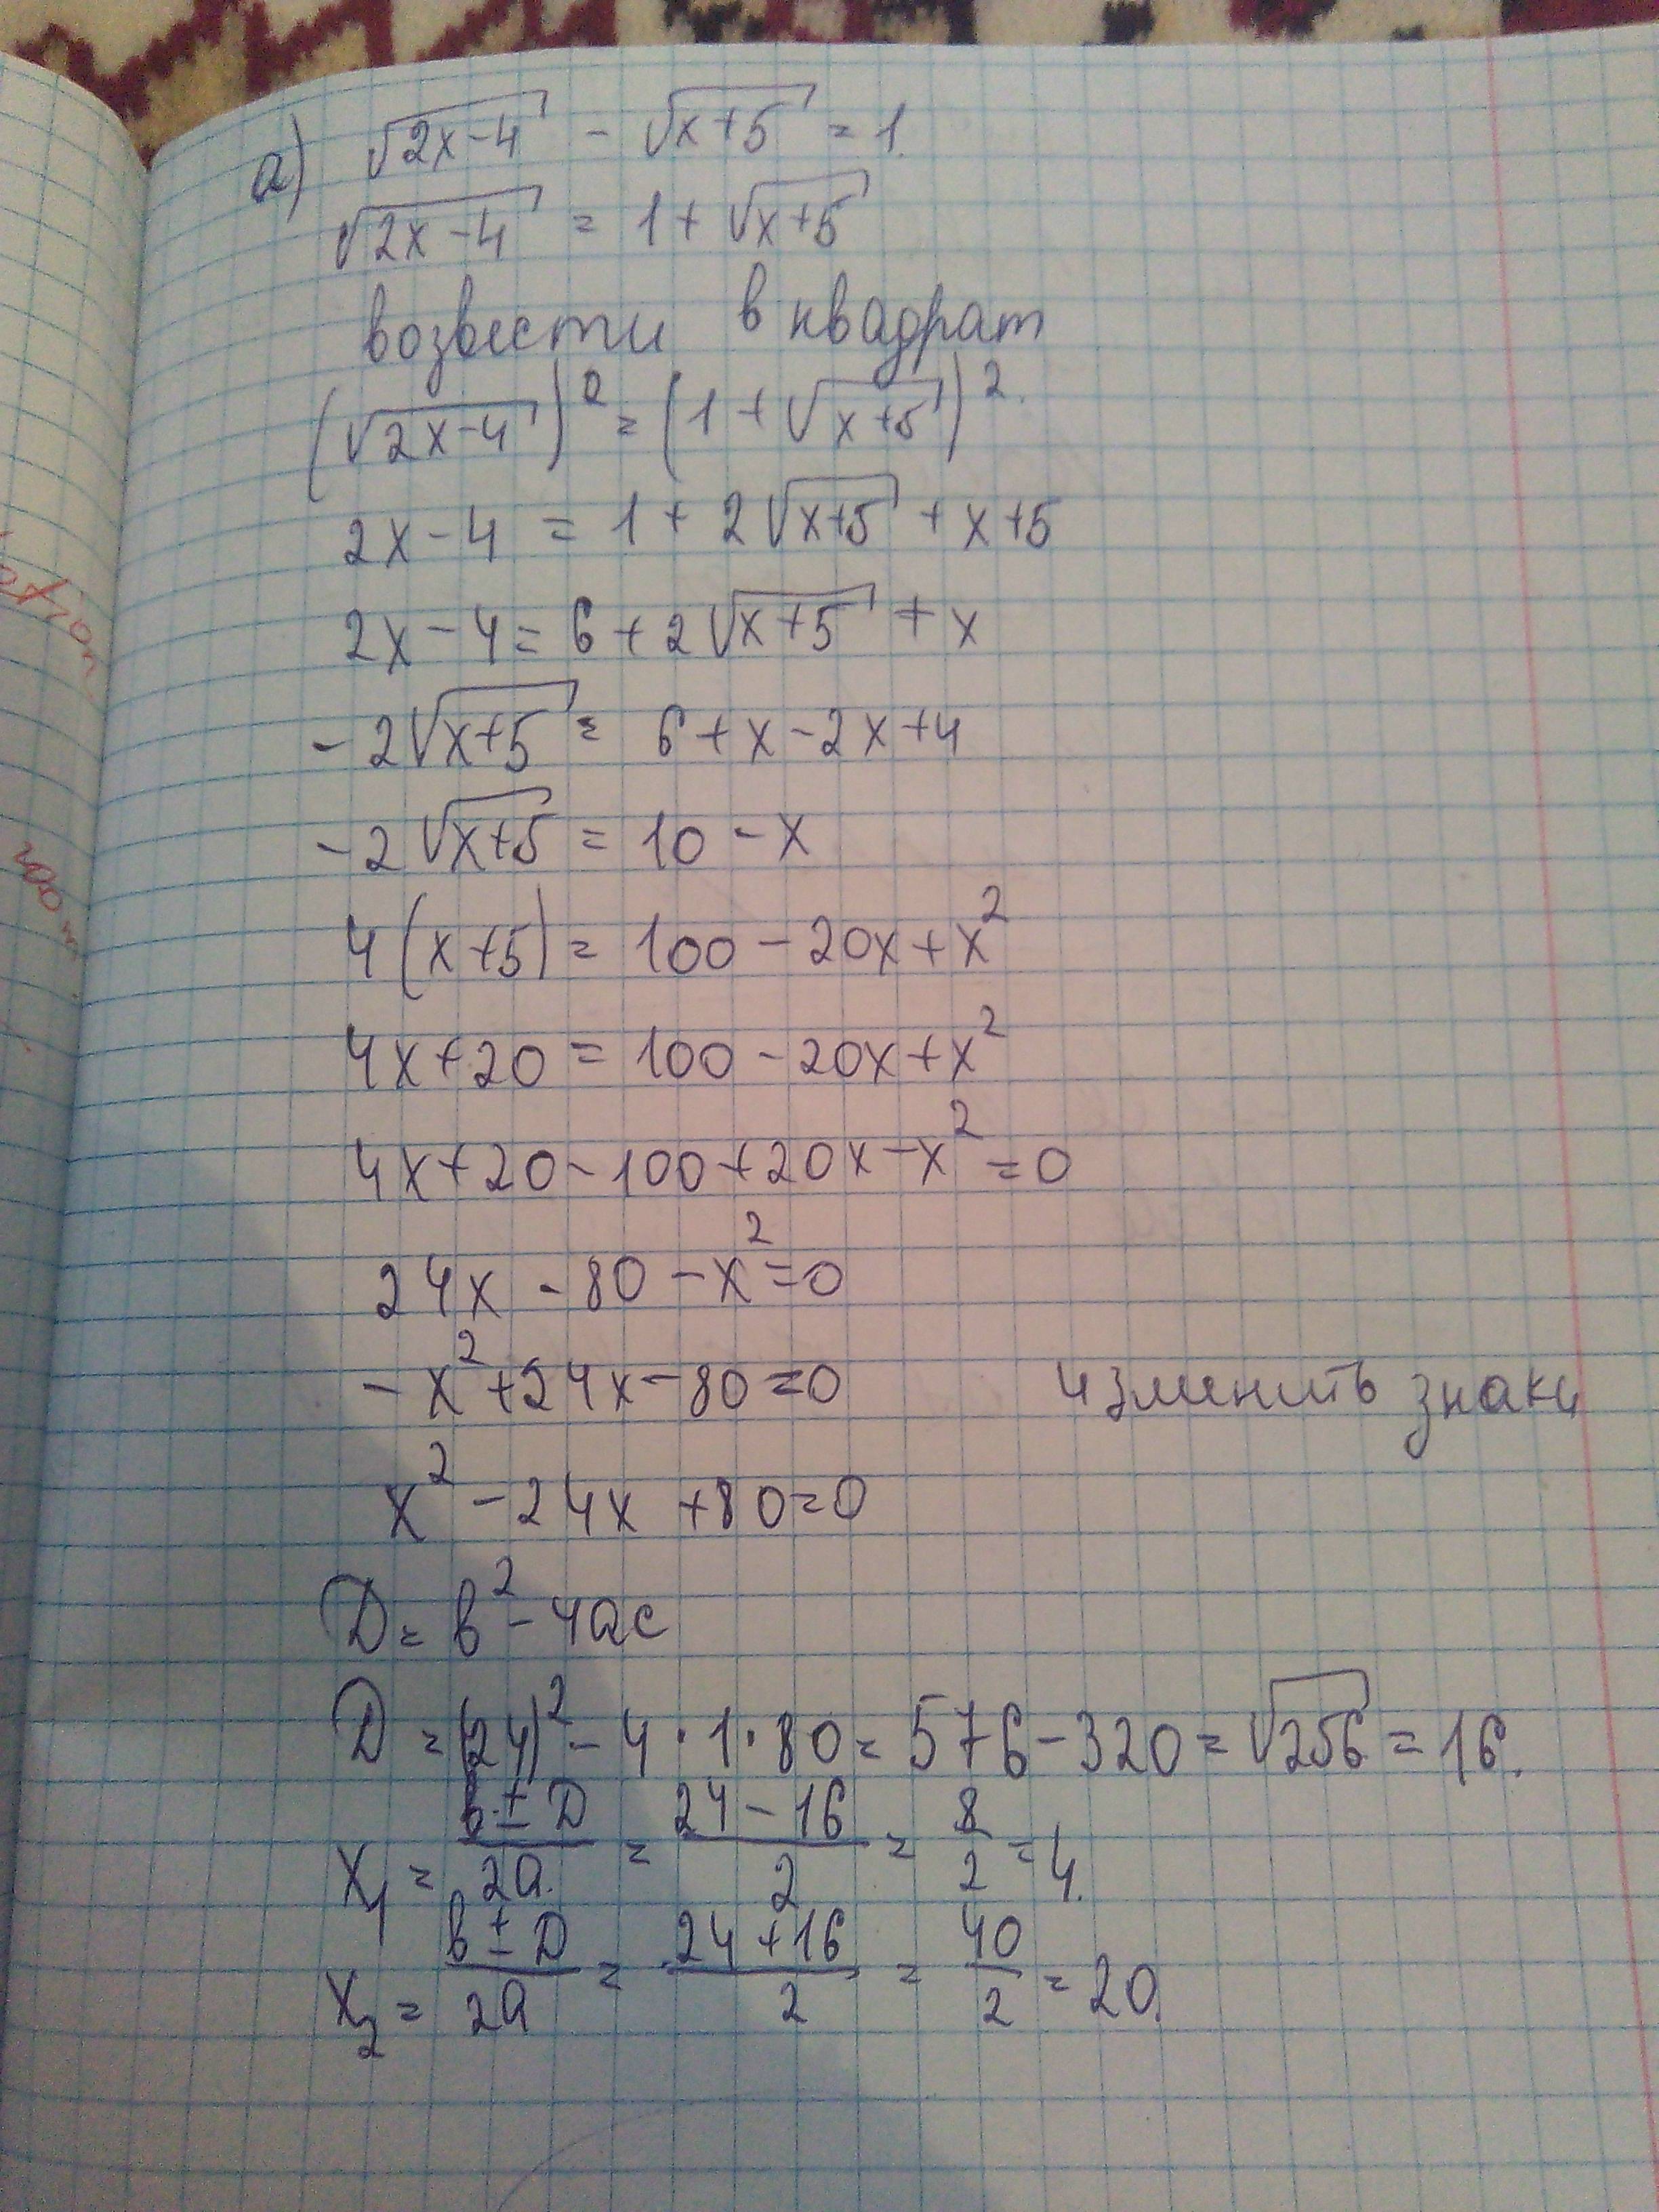 а) √2x-4 - √x+5 = 1.
√2x-4 = 1 + √x+5
возвести в квадрат
(√2x-4)² = (1 + √x+5)².
2x-4 = 1 + 2√x+5 + x+5
2x-4 = 6 + 2√x+5 + x
-2√x+5 = 6+x-2x+4
-2√x+5 = 10-x
4(x+5) = 100-20x+x²
4x+20 = 100-20x+x²
4x+20-100+20x-x²=0
24x-80-x²=0
-x²+24x-80=0 изменить знаки
x²-24x+80=0
D = b²-4ac
D = (24)²-4·1·80 = 576-320 = √256 = 16.
x₁ = b±D/2a. = 24-16/2 = 8/2 = 4.
x₂ = b±D/2a = 24+16/2 = 40/2 = 20.